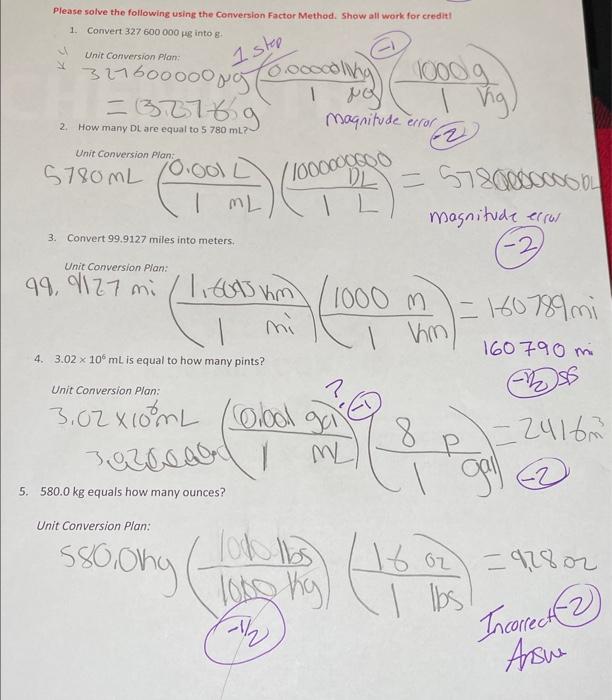 Please solve the following using the Conversion Factor Method. Show all work for credit!
1. Convert 327 600 000 µg into g.
Unit Conversion Plan: 1 step -1
327600000 µg 1000 g
1 µg 1 kg
magnitude error -2
2. How many DL are equal to 5 780 mL?
Unit Conversion Plan:
5780 mL (0.001 L / 1 mL) (1000000000 DL / 1 L) =
magnitude error
-2
3. Convert 99.9127 miles into meters.
Unit Conversion Plan:
99.9127 mi (1.6093 km / 1 mi) (1000 m / 1 km) = 160789 mi
160790 m
-1/2 SS
4. 3.02 × 10⁶ mL is equal to how many pints?
Unit Conversion Plan: ? -1
3.02 x 10⁶ mL (0.001 gal / 1 mL) (8 p / 1 gal) = 2416
-2
5. 580.0 kg equals how many ounces?
Unit Conversion Plan:
580.0 kg ( lbs / 1000 kg) (16 oz / 1 lbs) = 9,28 oz
-1/2
Incorrect -2